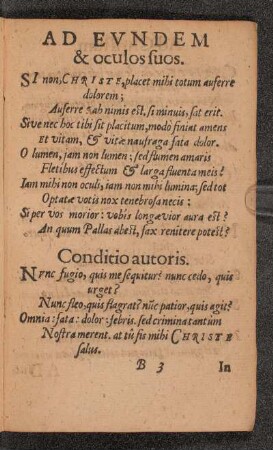 AD EVNDEM
& oculos suos.
SI non, CHRISTE, placet mihi totum auferre
dolorem;
Auferre? ah nimis est. si minuis, sat erit.
Sive nec hoc tibi sit placitum, modò finiat amens
Et vitam, & vitæ naufraga fata dolor.
O lumen, iam non lumen: sed flumen amaris
Fletibus effectum & larga fluenta meis?
Iam mihi non oculi, iam non mihi lumina; sed tot
Optatæ votis nox tenebrosa necis:
Si per vos morior: vobis longævior aura est?
An quum Pallas abest, fax renitere potest?
Conditio autoris.
NVNC fugio, quis me sequitur? nunc cedo, quis
urget?
Nunc fleo, quis flagrat? nũc patior, quis agit?
Omnia: fata: dolor: febris. sed crimina tantum
Nostra merent. at tũ sis mihi CHRISTE
salus.
B 3 In